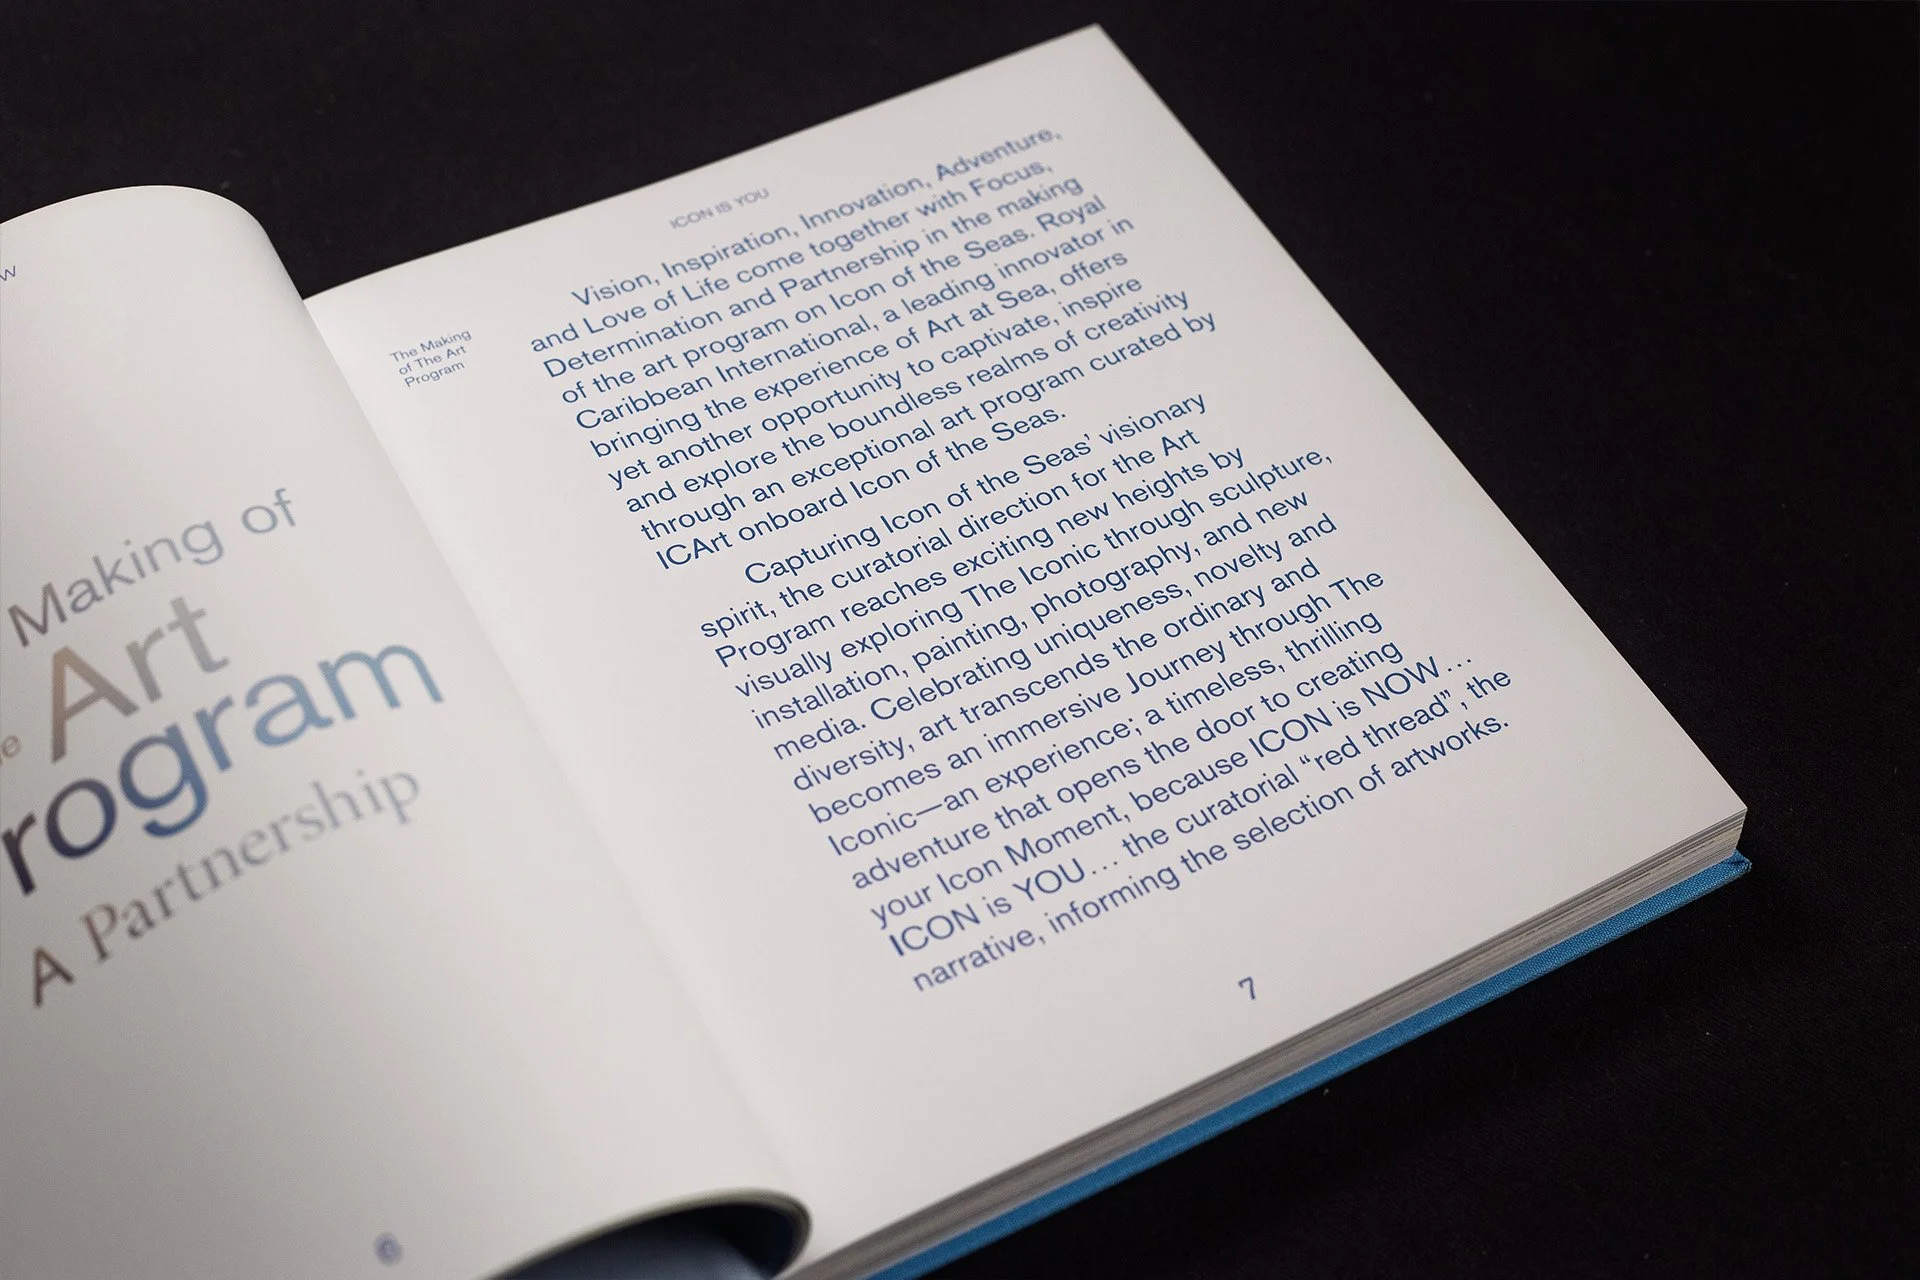 w
Making of
e Art
rogram
A Partnership
6
ICON IS YOU
The Making
of The Art
Program
Vision, Inspiration, Innovation, Adventure,
and Love of Life come together with Focus,
Determination and Partnership in the making
of the art program on Icon of the Seas. Royal
Caribbean International, a leading innovator in
bringing the experience of Art at Sea, offers
yet another opportunity to captivate, inspire
and explore the boundless realms of creativity
through an exceptional art program curated by
ICArt onboard Icon of the Seas.
Capturing Icon of the Seas’ visionary
spirit, the curatorial direction for the Art
Program reaches exciting new heights by
visually exploring The Iconic through sculpture,
installation, painting, photography, and new
media. Celebrating uniqueness, novelty and
diversity, art transcends the ordinary and
becomes an immersive Journey through The
Iconic—an experience; a timeless, thrilling
adventure that opens the door to creating
your Icon Moment, because ICON is NOW…
ICON is YOU… the curatorial “red thread”, the
narrative, informing the selection of artworks.
7